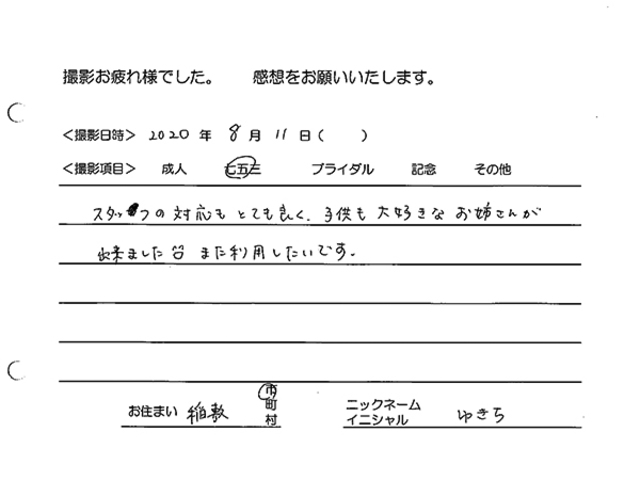 撮影お疲れ様でした。　感想をお願いいたします。
<撮影日時> 2020 年 8 月 11 日 (　　)
<撮影項目>　成人　七五三　ブライダル　記念　その他
スタッフの対応もとても良く、子供も大好きなお姉さんが
出来ました また利用したいです。
お住まい 稲敷 市 町 村　ニックネーム イニシャル ゆきち